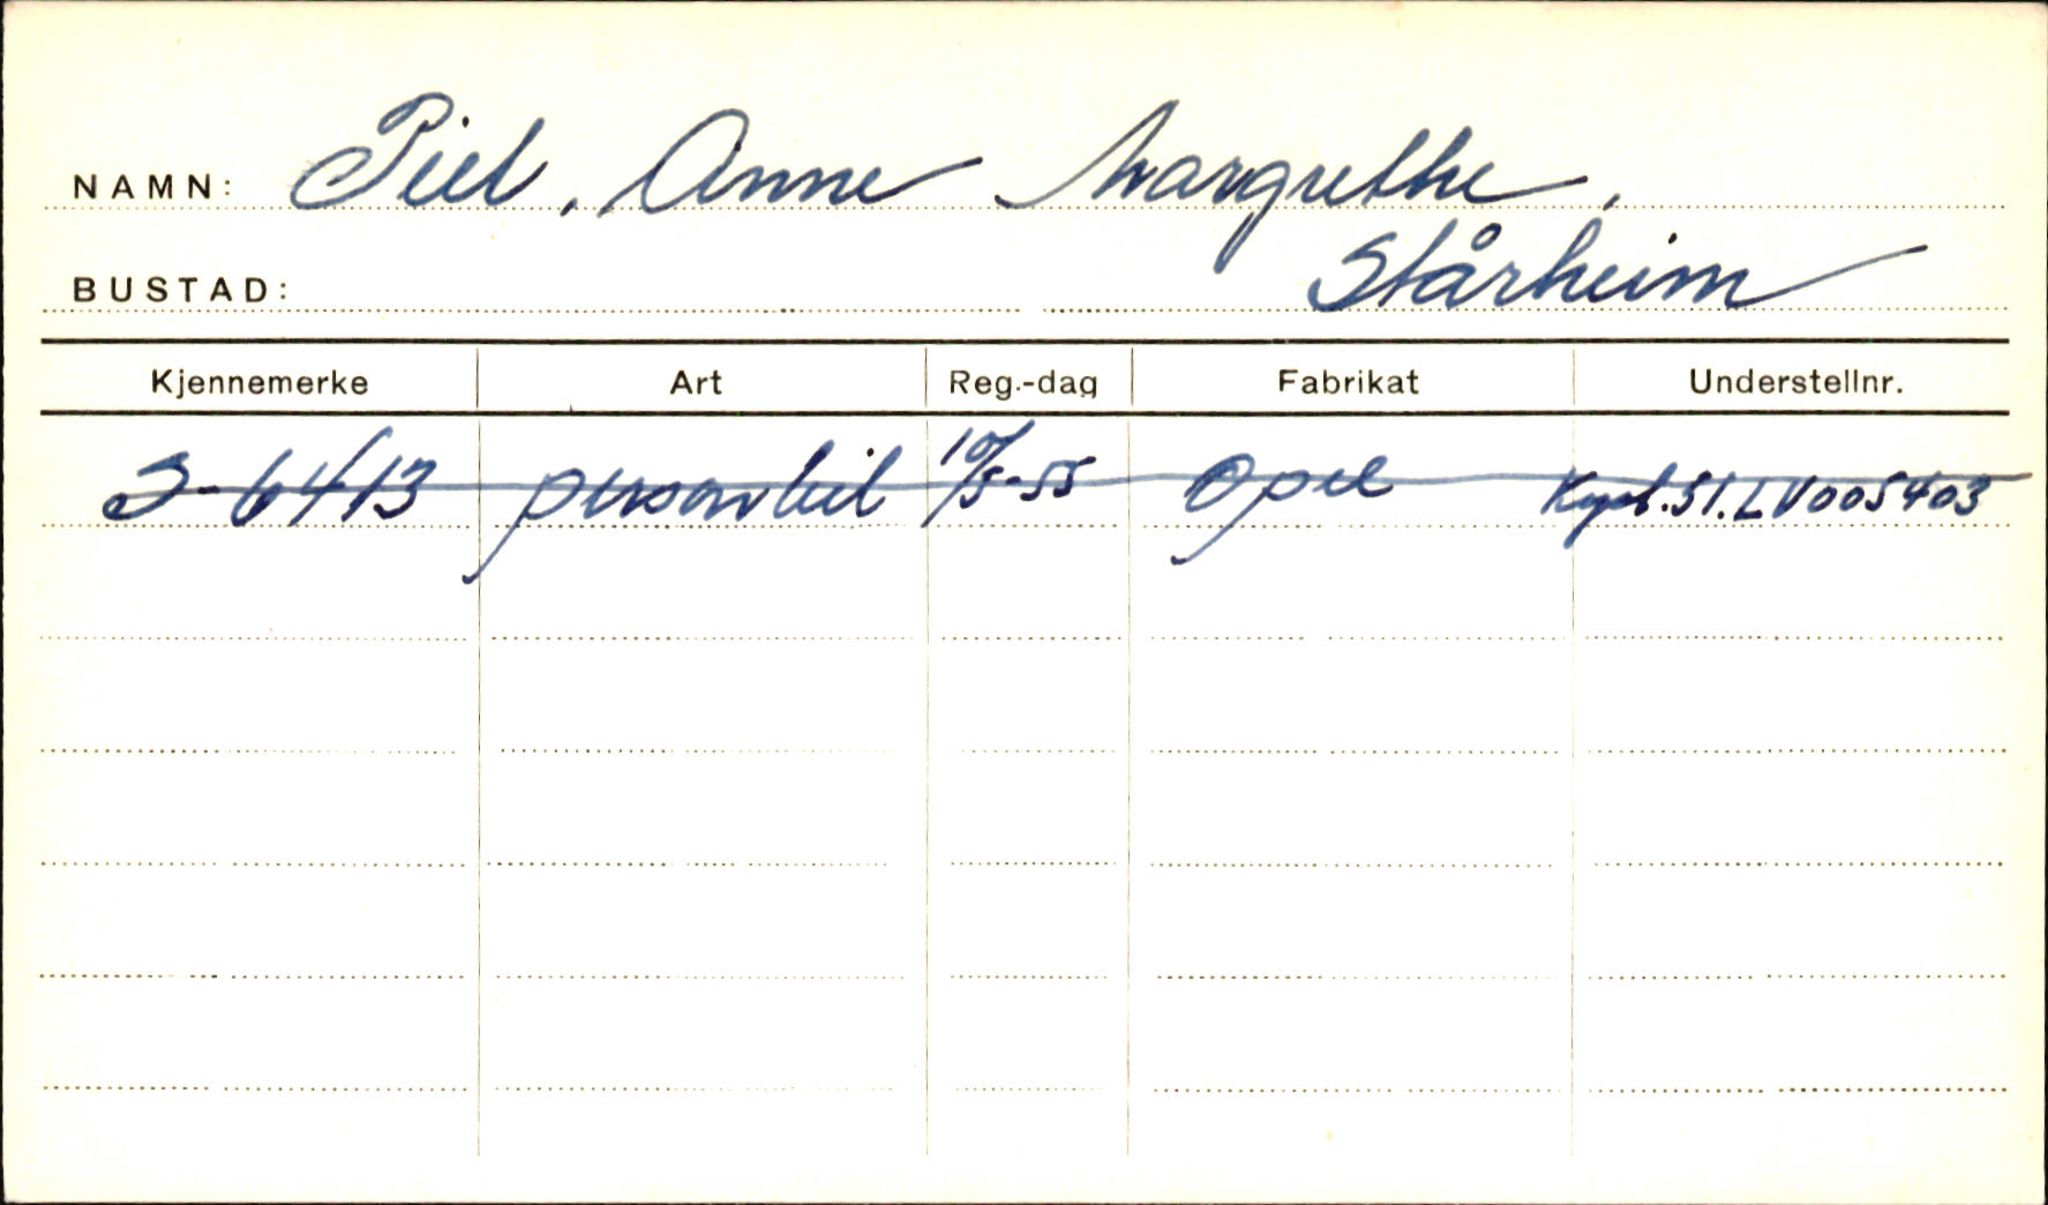 NAMN: Piel, Anne Margrethe,
BUSTAD: Stårheim
Kjennemerke Art Reg.-dag Fabrikat Understellnr.
S-6413 personbil 10/5-55 Opel 51.LV005403